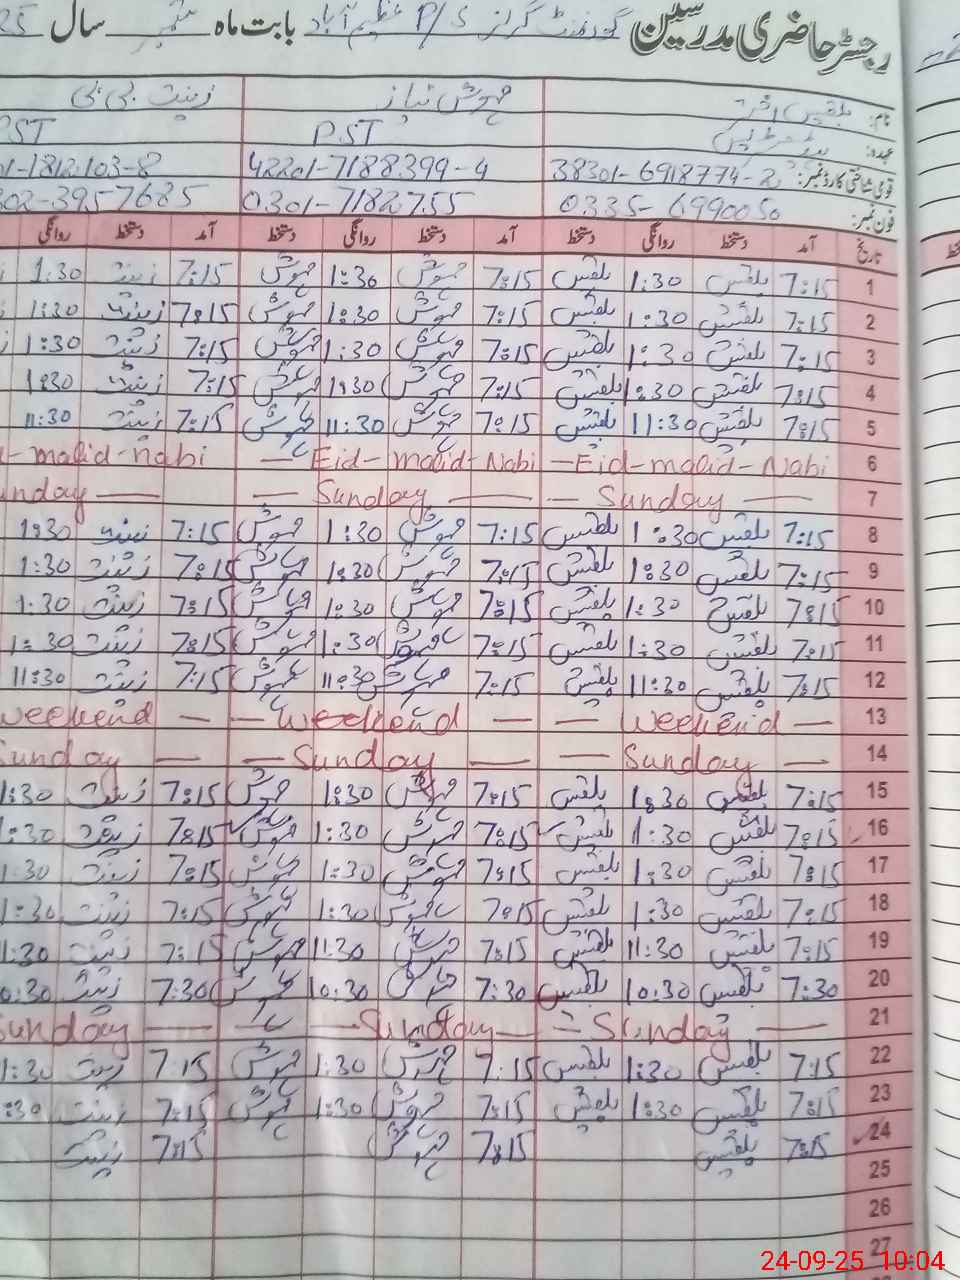 رجسٹر حاضری مدرسین گورنمنٹ گرلز P/S عظیم آباد بابت ماہ ستمبر سال 25
نام: بلقیس اختر مہوش نیاز زینت بی بی
عہدہ: PST PST
قومی شناختی کارڈ نمبر: 38301-6918774-2 42201-7188399-4 01-1812103-8
فون نمبر: 0335-6990050 0301-7182755 302-3957685
تاریخ آمد دستخط روانگی دستخط آمد دستخط روانگی دستخط آمد دستخط روانگی
1 7:15 بلقیس 1:30 بلقیس 7:15 مہوش 1:30 مہوش 7:15 زینت 1:30
2 7:15 بلقیس 1:30 بلقیس 7:15 مہوش 1:30 مہوش 7:15 زینت 1:30
3 7:15 بلقیس 1:30 بلقیس 7:15 مہوش 1:30 مہوش 7:15 زینت 1:30
4 7:15 بلقیس 1:30 بلقیس 7:15 مہوش 1:30 مہوش 7:15 زینت 1:30
5 7:15 بلقیس 11:30 بلقیس 7:15 مہوش 11:30 مہوش 7:15 زینت 11:30
6 Eid-malid-Nabi — Eid-malid-Nabi — malid-nabi
7 — Sunday — — Sunday — — nday
8 7:15 بلقیس 1:30 بلقیس 7:15 مہوش 1:30 مہوش 7:15 زینت 1:30
9 7:15 بلقیس 1:30 بلقیس 7:15 مہوش 1:30 مہوش 7:15 زینت 1:30
10 7:15 بلقیس 1:30 بلقیس 7:15 مہوش 1:30 مہوش 7:15 زینت 1:30
11 7:15 بلقیس 1:30 بلقیس 7:15 مہوش 1:30 مہوش 7:15 زینت 1:30
12 7:15 بلقیس 11:30 بلقیس 7:15 مہوش 11:30 مہوش 7:15 زینت 11:30
13 — Weekend — — Weekend — — weekend
14 — Sunday — — Sunday — — Sunday
15 7:15 بلقیس 1:30 بلقیس 7:15 مہوش 1:30 مہوش 7:15 زینت 1:30
16 7:15 بلقیس 1:30 بلقیس 7:15 مہوش 1:30 مہوش 7:15 زینت 1:30
17 7:15 بلقیس 1:30 بلقیس 7:15 مہوش 1:30 مہوش 7:15 زینت 1:30
18 7:15 بلقیس 1:30 بلقیس 7:15 مہوش 1:30 مہوش 7:15 زینت 1:30
19 7:15 بلقیس 11:30 بلقیس 7:15 مہوش 11:30 مہوش 7:15 زینت 11:30
20 7:30 بلقیس 10:30 بلقیس 7:30 مہوش 10:30 مہوش 7:30 زینت 0:30
21 — Sunday — — Sunday — — Sunday
22 7:15 بلقیس 1:30 بلقیس 7:15 مہوش 1:30 مہوش 7:15 زینت 1:30
23 7:15 بلقیس 1:30 بلقیس 7:15 مہوش 1:30 مہوش 7:15 زینت :30
24 7:15 بلقیس 7:15 مہوش 7:15 زینت
25
26
27
24-09-25 10:04